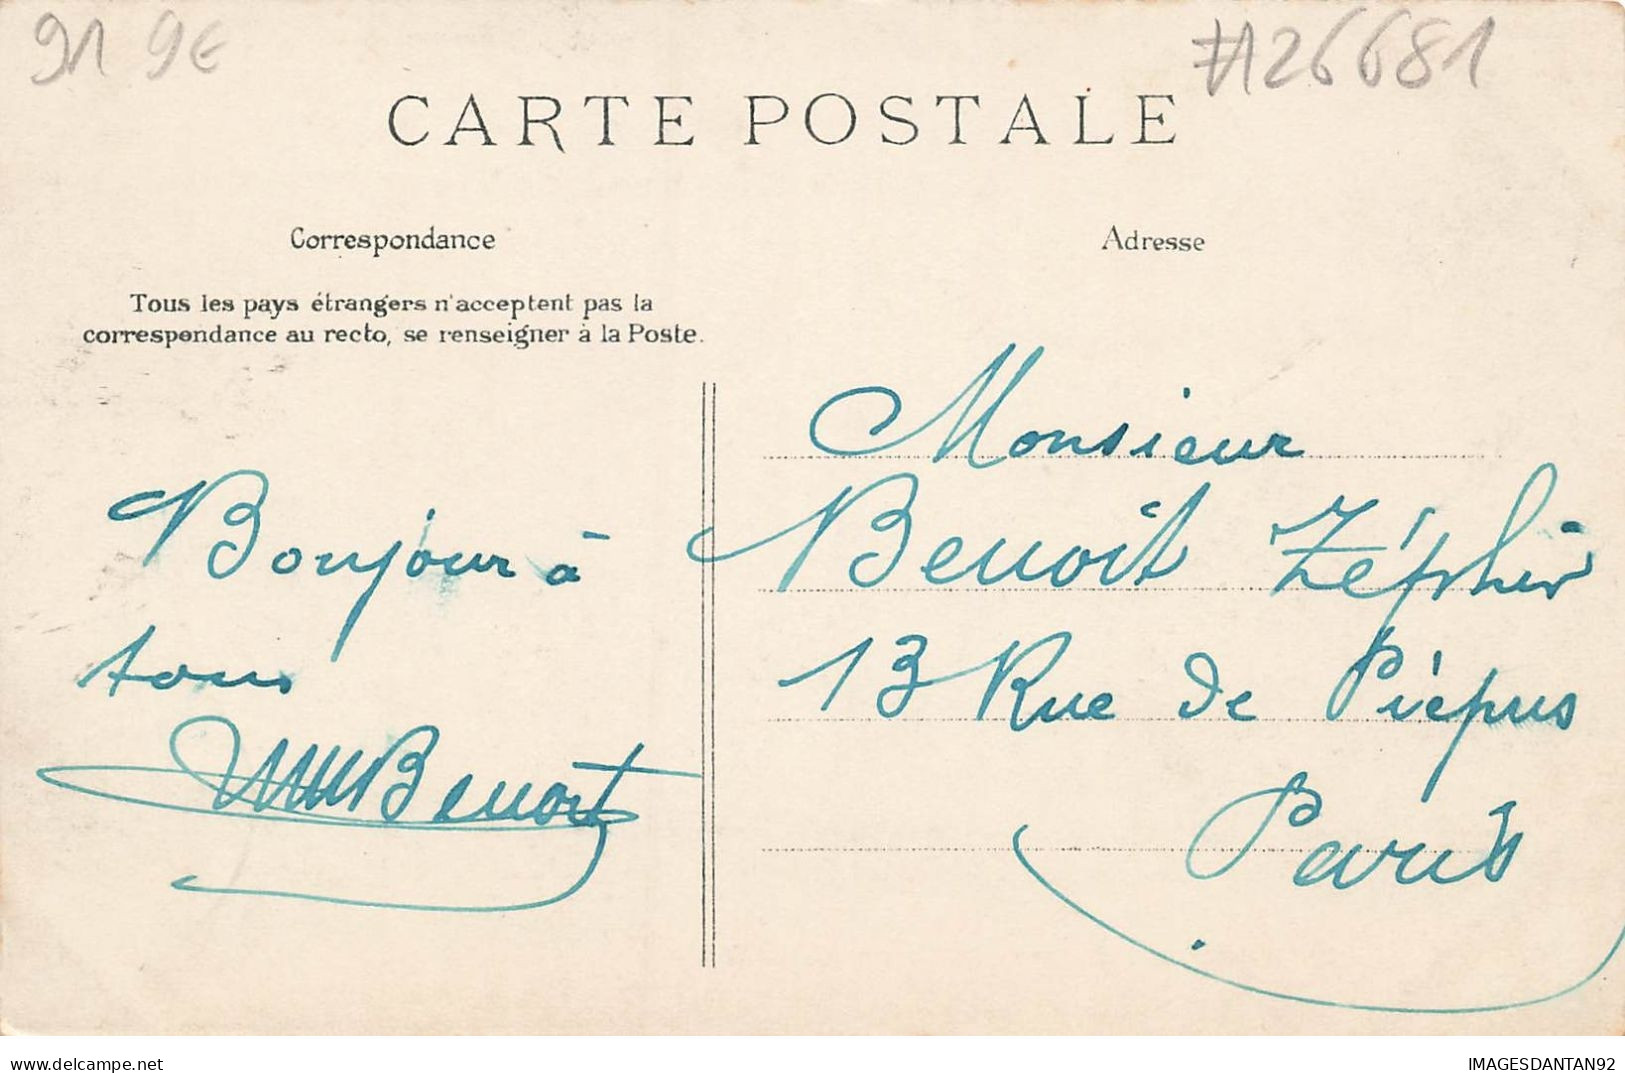 91 9€
#126681
CARTE POSTALE
Correspondance
Adresse
Tous les pays étrangers n'acceptent pas la
correspondance au recto, se renseigner à la Poste.
Monsieur
Benoit Zéphir
13 Rue de Picpus
Paris
Bonjour à
tous
Benoit
delcampe.net
IMAGESDANTAN92